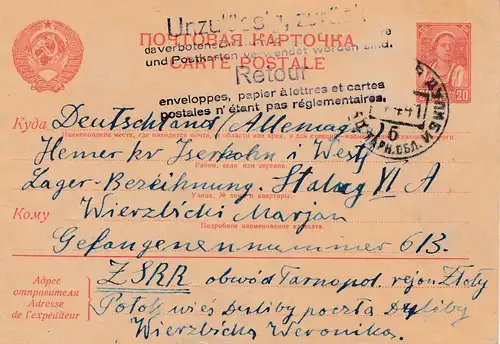 Unzulässig, zurück
ПОЧТОВАЯ КАРТОЧКА
da verbotene
und Postkarten verwendet worden sind.
CARTE POSTALE
Retour
enveloppes, papier à lettres et cartes
postales n'étant pas réglementaires.
20
Куда Deutschland Allemagne
Наименование места, где находится почта, и области или края, а для станции
Hemer kr Iserlohn i Westf
Район, село или деревня
Lager-Bezeichnung. Stalag VI A
Улица, № дома и квартиры.
Кому Wierzbicki Marjan
Подробное наименование адресата.
Gefangenennummer 613.
Адрес отправителя
Adresse de l'expéditeur
ZSRR obwód Tarnopol. rejon Złoty
Potok wieś Duliby poczta Duliby
Wierzbicka Weronika.